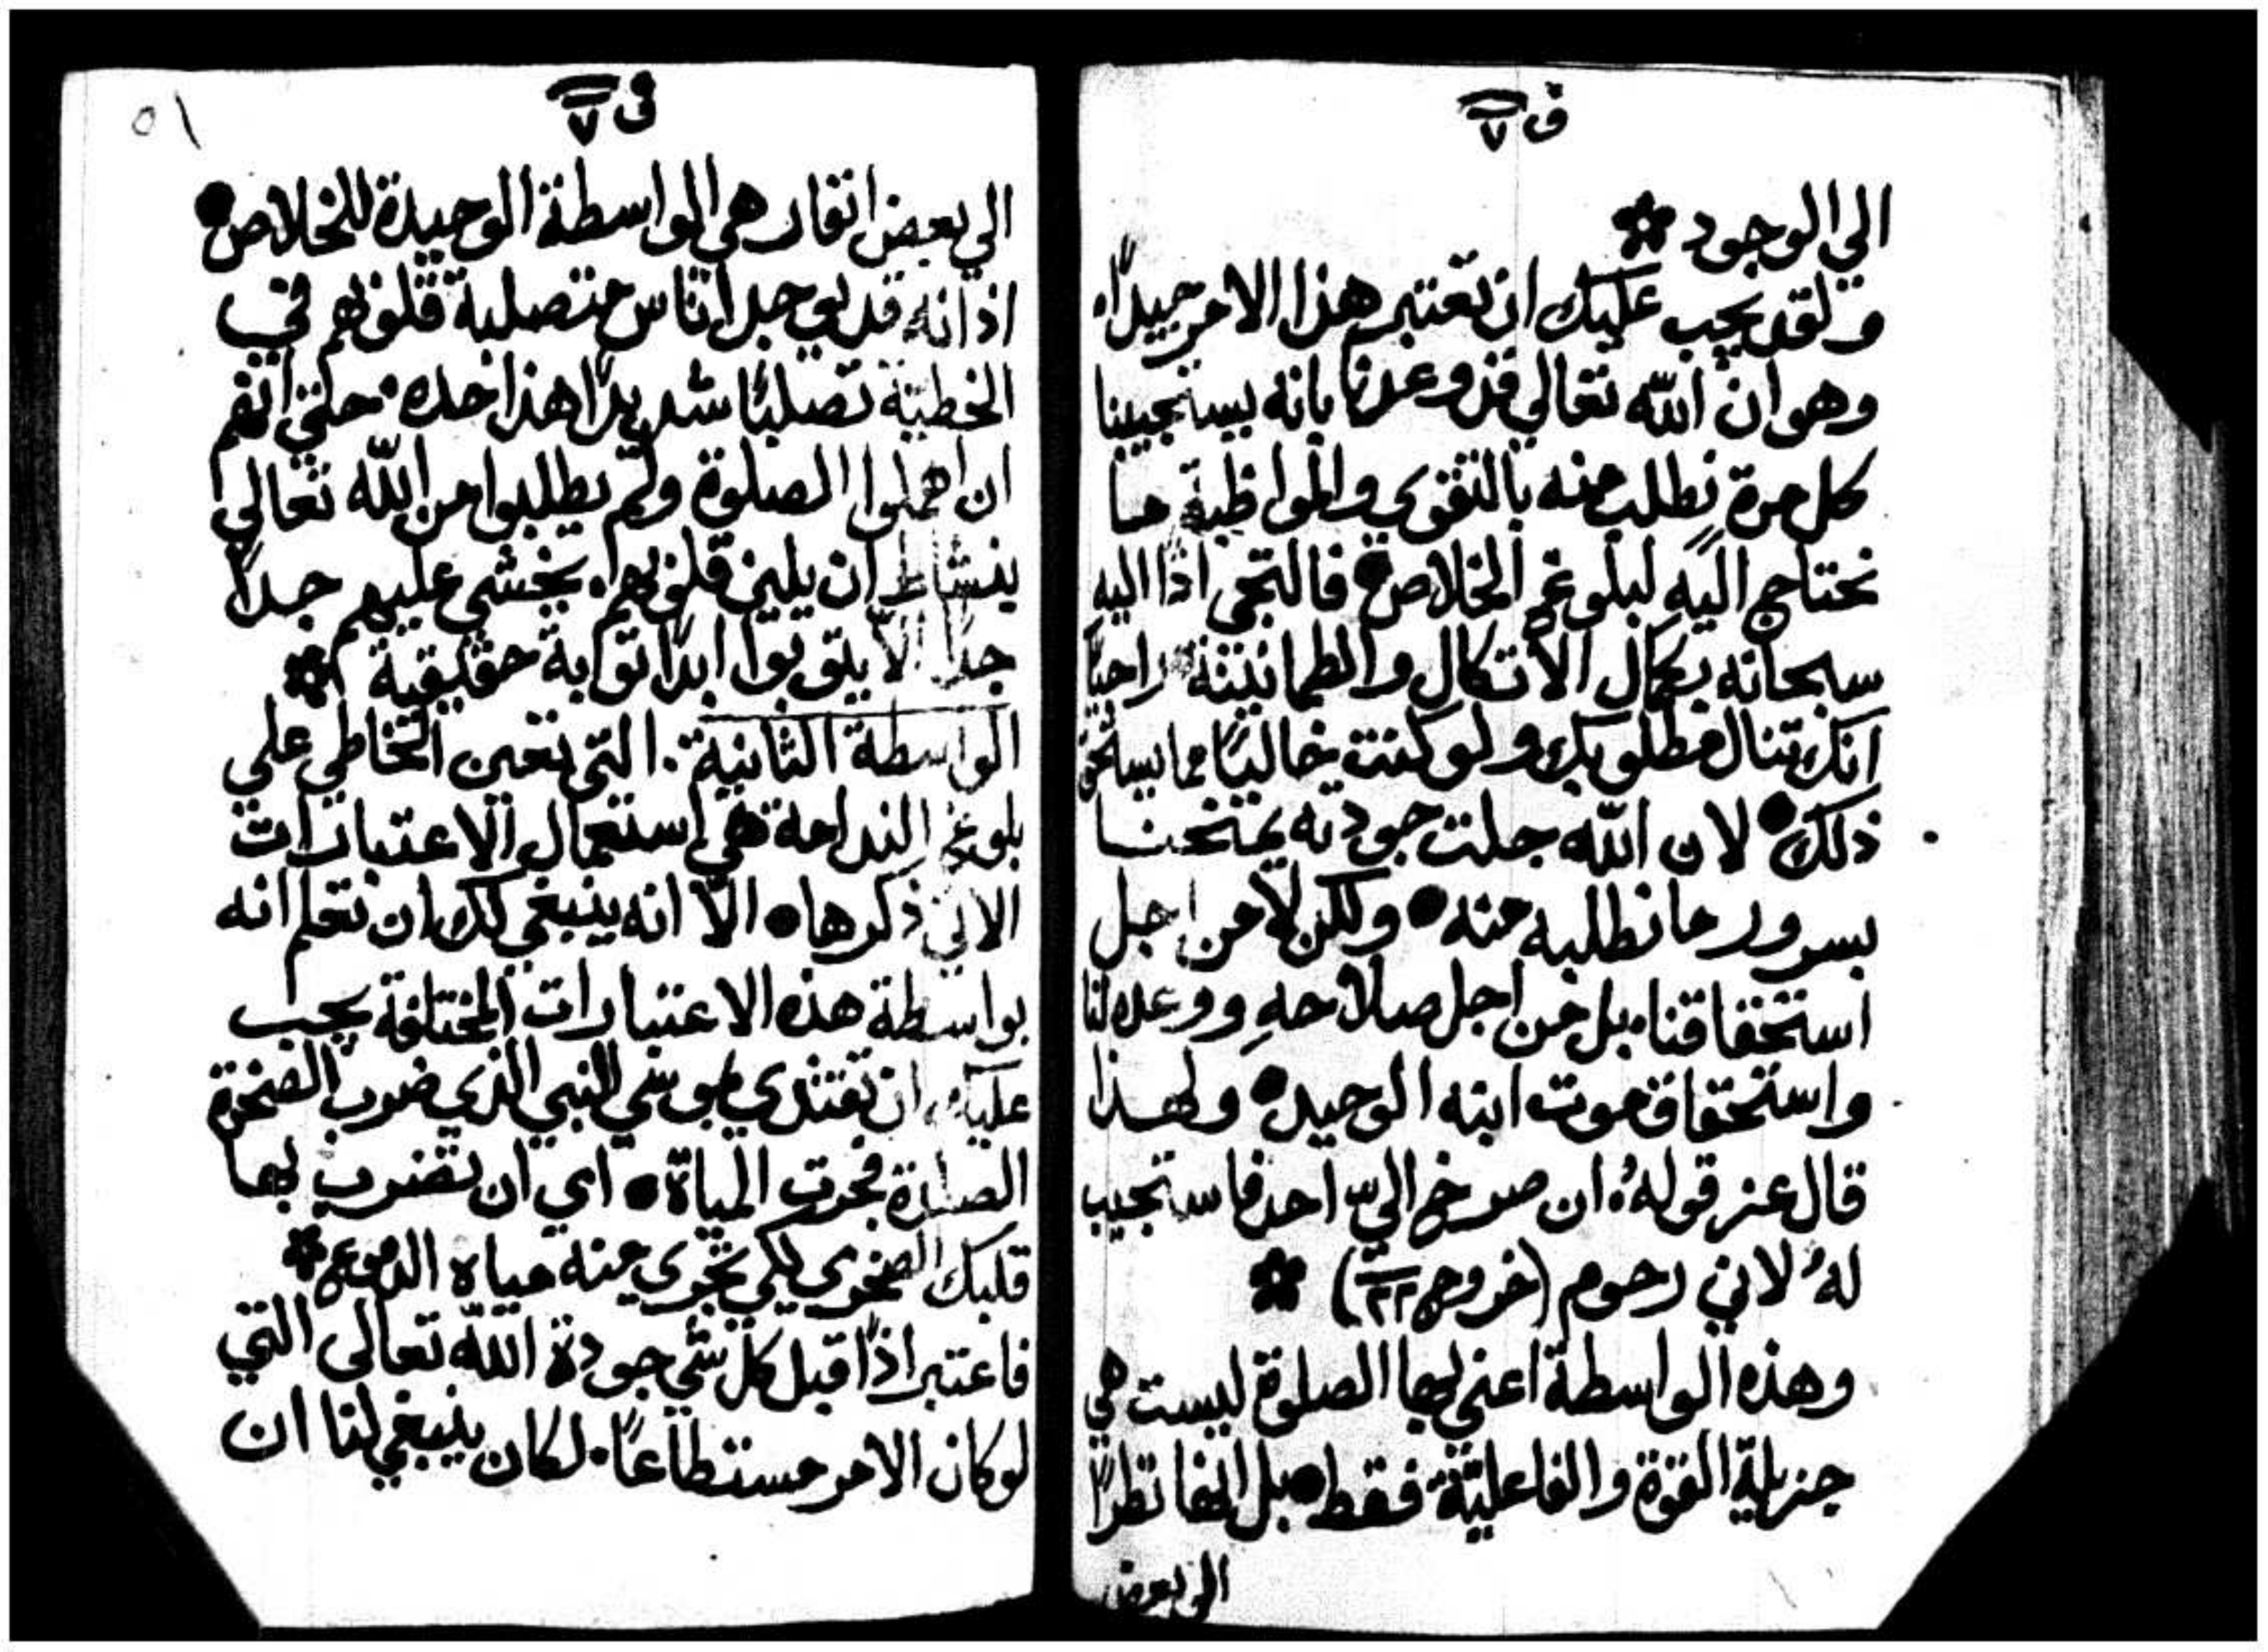 ف ٧
الي الوجود
ولقد يجب عليك ان تعتبر هذا الامر جيدًا.
وهو ان الله تعالي قد وعدنا بانه يستجيبنا
كل مرة نطلب منه بالتقوي والمواظبة ما
نحتاج اليه لبلوغ الخلاص • فالتجي اذًا اليه
سبحانه بكمال الاتكال والطمانينة راجيًا
انك تنال مطلوبك ولو كنت خاليًا مما يستحق
ذلك • لان الله جلت جودته يمنحنا
بسرور ما نطلبه منه • ولكن لا من اجل
استحقاقنا. بل من اجل صلاحه ووعده لنا
واستحقاق موت ابنه الوحيد • ولهذا
قال عز قوله. ان صرخ اليّ احد فاستجيب
لهُ لاني رحوم (خروج ٢٢)
وهذه الواسطة اعني بها الصلوة ليست هي
جزيلة القوة والفاعلية فقط • بل انها نظرًا
الي بعض
ف ٧
٥١
الي بعض انفار هي الواسطة الوحيدة للخلاص •
اذ انه قد يوجد اناس متصلبة قلوبهم في
الخطية تصلبًا شديدًا هذا حده. حتي انهم
ان اهملوا الصلوة ولم يطلبوا من الله تعالي
بنشاط ان يلين قلوبهم. يخشي عليهم جدًا
جدًا الّا يتوبوا ابدًا توبة حقيقية
الواسطة الثانية. التي تعين الخاطي علي
بلوغ الندامة هي استعمال الاعتبارات
الاتي ذكرها • الّا انه ينبغي لك ان تعلم انه
بواسطة هذه الاعتبارات المختلفة يجب
عليك ان تقتدي بموسي النبي الذي ضرب الصخرة
الصلدة فجرت المياة • اي ان تضرب بها
قلبك الصخري لكي تجري منه مياه الدموع
فاعتبر اذًا قبل كل شي جودة الله تعالى التي
لو كان الامر مستطاعًا. لكان ينبغي لنا ان